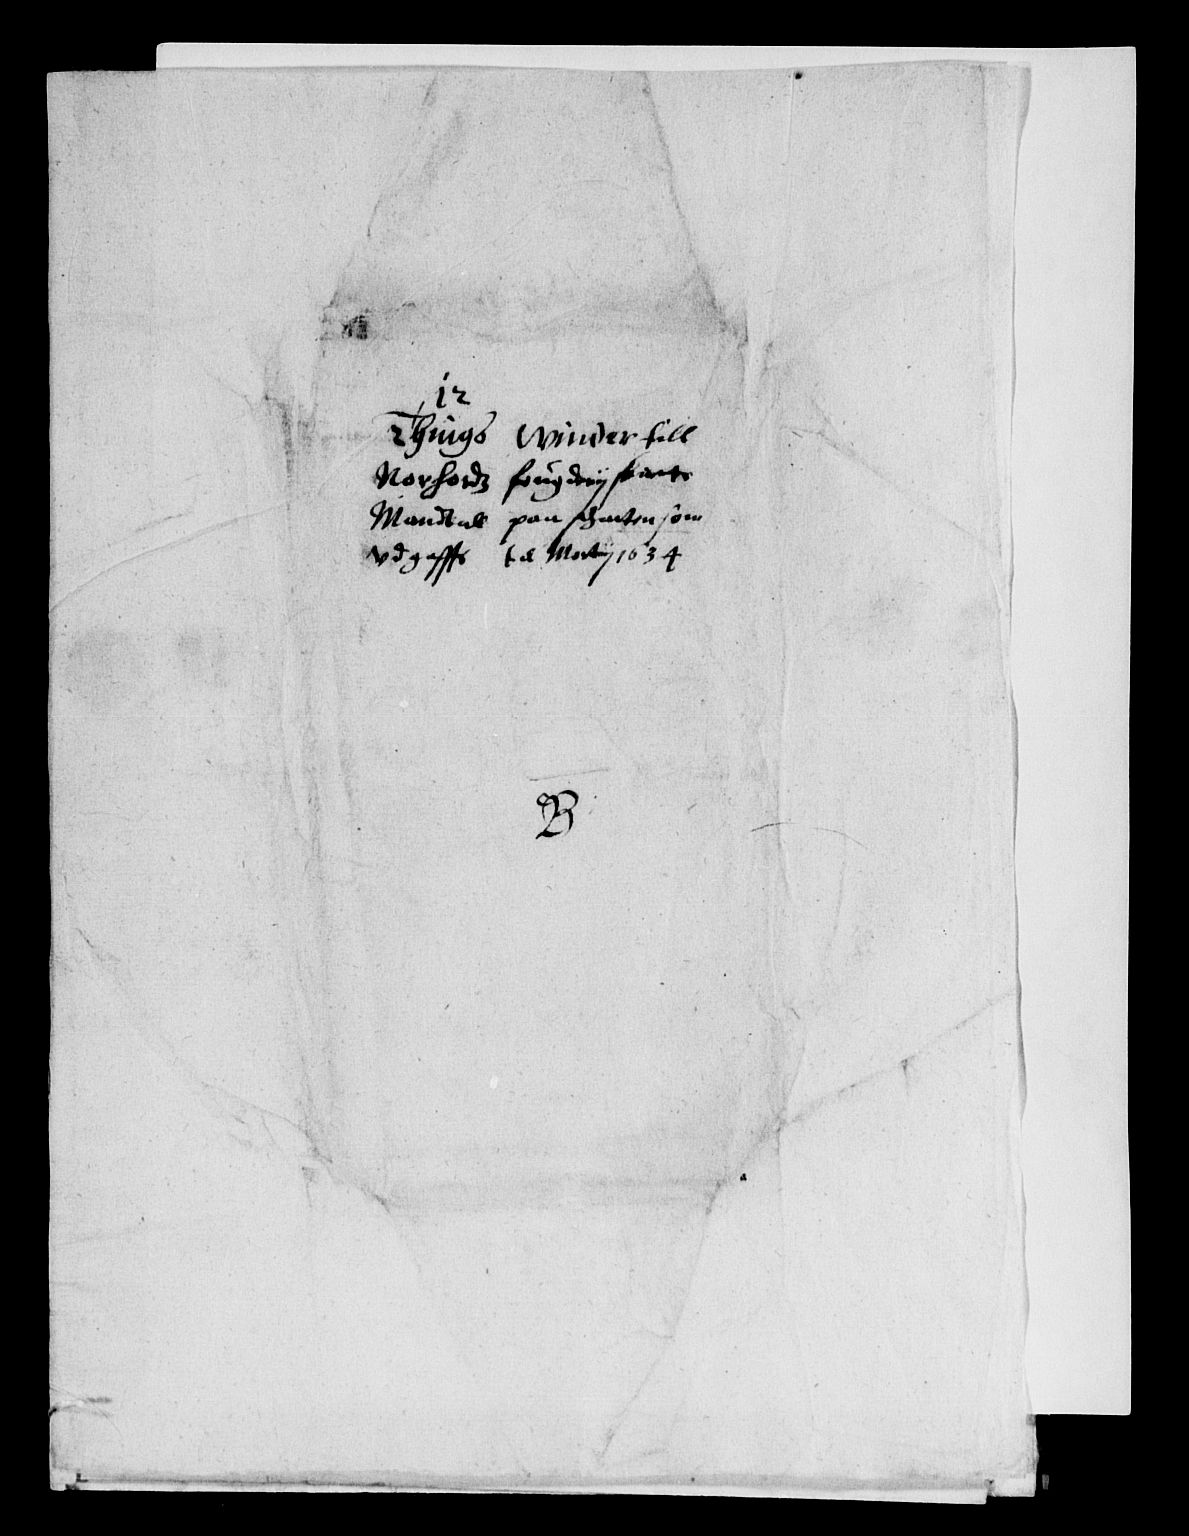 12
Things Winder till
Norhordz fougderij
Mandtall paa schatten som
vdgaffs till Martij 1634
B